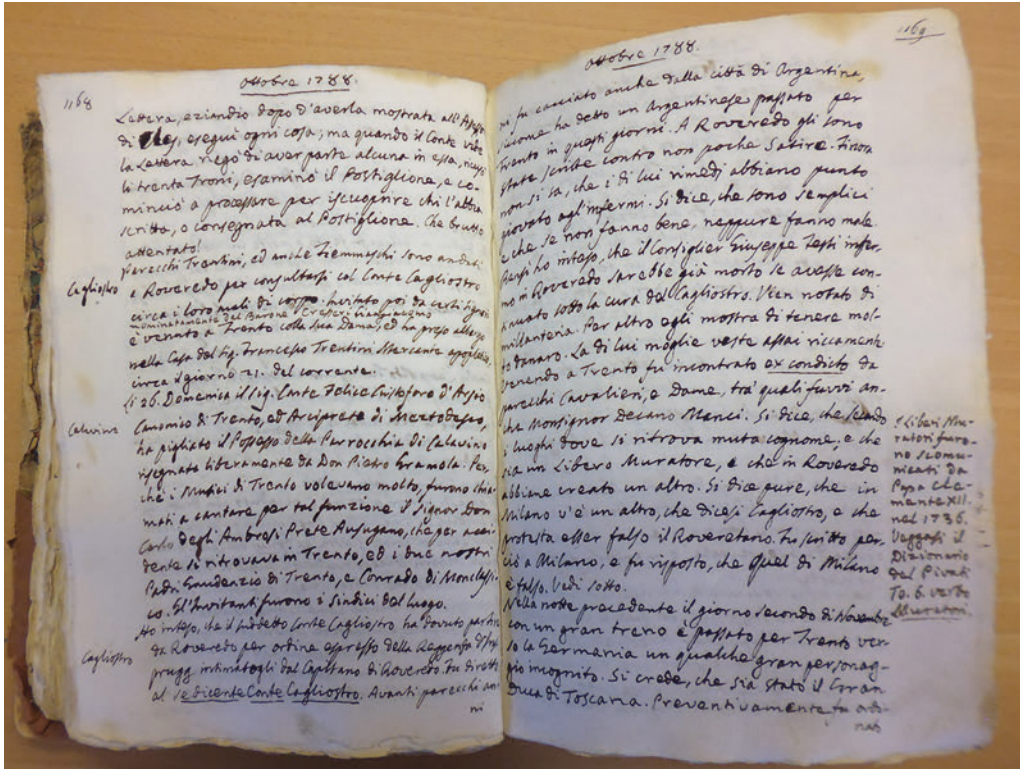 1168
Ottobre 1788.
Lettera, eziandio dopo d'averla mostrata all'
di eseguì ogni cosa; ma quando il Conte vide
la Lettera negò di aver parte alcuna in essa,
li trenta Troni, esaminò il Postiglione, e co-
minciò a processare per iscuoprire chi l'abbia
scritta, o consegnata al Postiglione. Che brutto
attentato!
Cagliostro
Parecchi Trentini, ed anche Fiemmaschi sono andati
a Roveredo per consultarsi col Conte Cagliostro
circa i loro mali di corpo. Invitato poi da certi Signori
nominatamente del Barone Cresseri
è venuto a Trento colla sua Dama, ed ha preso albergo
nella Casa del Sig. Francesco Trentini Mercante
circa il giorno 21. del corrente.
Calavino
Li 26. Domenica il Sig. Conte Felice Cristoforo d'Arsio
Canonico di Trento, ed Arciprete di Mezotedesco,
ha pigliato il Possesso della Parrocchia di Calavino
risegnata liberamente da Don Pietro Gramola. Per-
chè i Musici di Trento volevano molto, furono chia-
mati a cantare per tal funzione il Signor Don
Carlo degli Ambrosi Prete Ausugano, che per acci-
dente si ritrovava in Trento, ed i due nostri
Padri Gaudenzio di Trento, e Conrado di Monclassi-
co. Gl'Invitanti furono i Sindici del luogo.
Cagliostro
Ho inteso, che il suddetto Conte Cagliostro ha dovuto partire
da Roveredo per ordine espresso della Reggenza d'Ins-
prugg intimatogli dal Capitano di Roveredo. Fu diretto
al sedicente Conte Cagliostro. Avanti parecchi an-
ni
1169
Ottobre 1788.
ni fu cacciato anche dalla città di Argentina,
siccome ha detto un Argentinese passato per
Trento in questi giorni. A Roveredo gli sono
state scritte contro non poche Satire. Finora
non si sa, che i di lui rimedj abbiano punto
giovato agl'infermi. Si dice, che sono semplici
e che se non fanno bene, neppure fanno male.
Anzi ho inteso, che il Consiglier Giuseppe Testi infer-
mo in Roveredo sarebbe già morto se avesse con-
tinuato sotto la cura del Cagliostro. Vien notato di
millanteria. Per altro egli mostra di tenere mol-
to danaro. La di lui moglie veste assai riccamente
venendo a Trento fu incontrato ex condicto da
parecchi Cavalieri, e Dame, tra' quali fuvvi an-
che Monsignor Decano Manci. Si dice, che secondo
i luoghi dove si ritrova muta cognome, e che
sia un Libero Muratore, e che in Roveredo
abbiane creato un altro. Si dice pure, che in
Milano v'è un altro, che dicesi Cagliostro, e che
protesta esser falso il Roveretano. Fu scritto per-
ciò a Milano, e fu risposto, che quel di Milano
è falso. Vedi sotto.
I Liberi Mu-
ratori furo-
no scomu-
nicati da
Papa Cle-
mente XII.
nel 1736.
Veggasi il
Dizionario
del Pivati
To. 6. verbo
Muratori.
Nella notte precedente il giorno secondo di Novembre
con un gran treno è passato per Trento ver-
so la Germania un qualche gran personag-
gio incognito. Si crede, che sia stato il Gran
Duca di Toscana. Preventivamente fu ordi-
nato